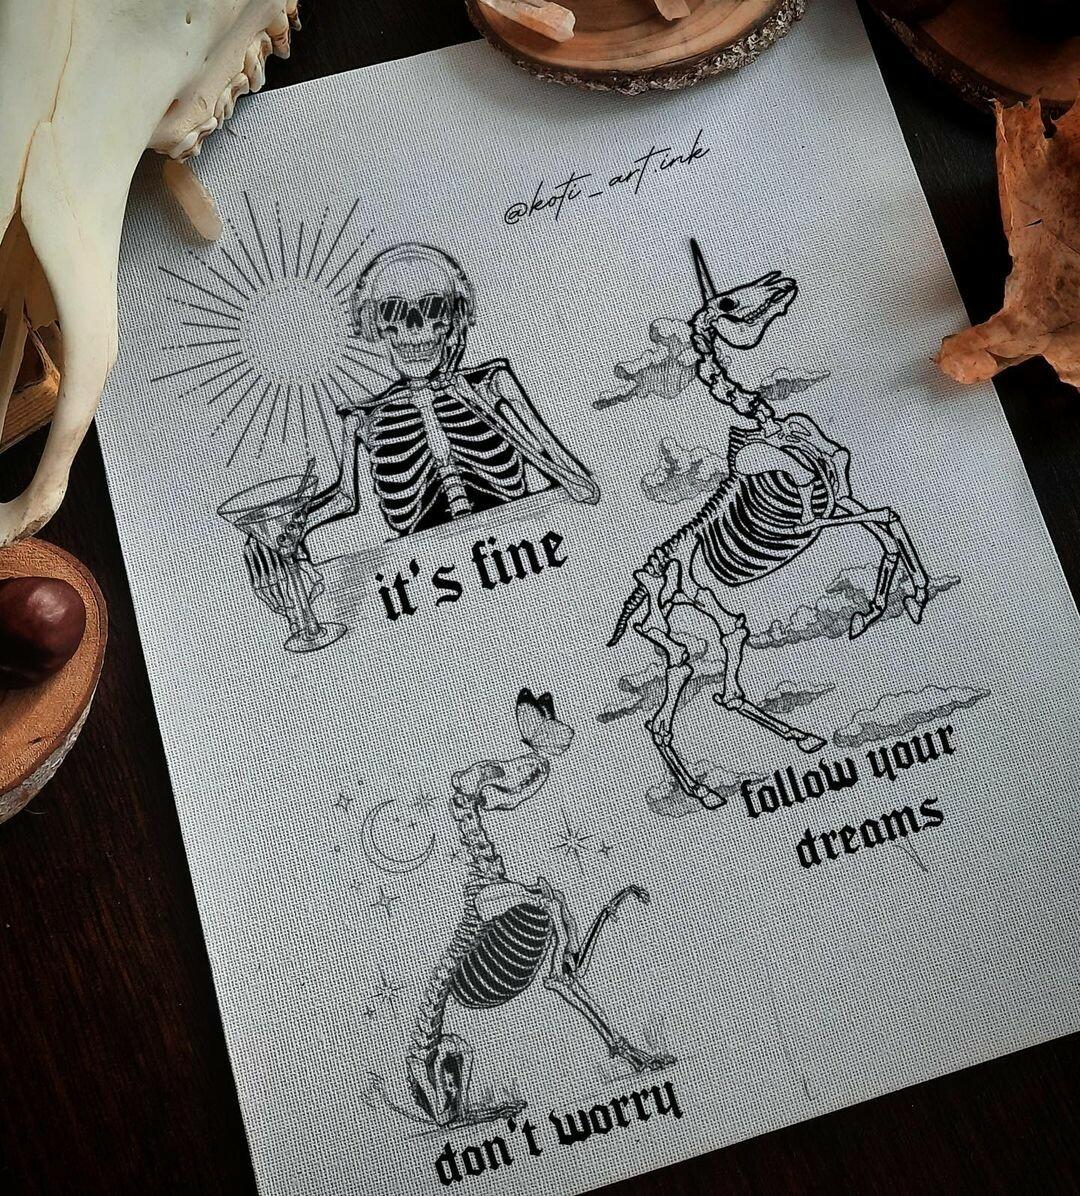 @koti_art.ink
it's fine
follow your
dreams
don't worry